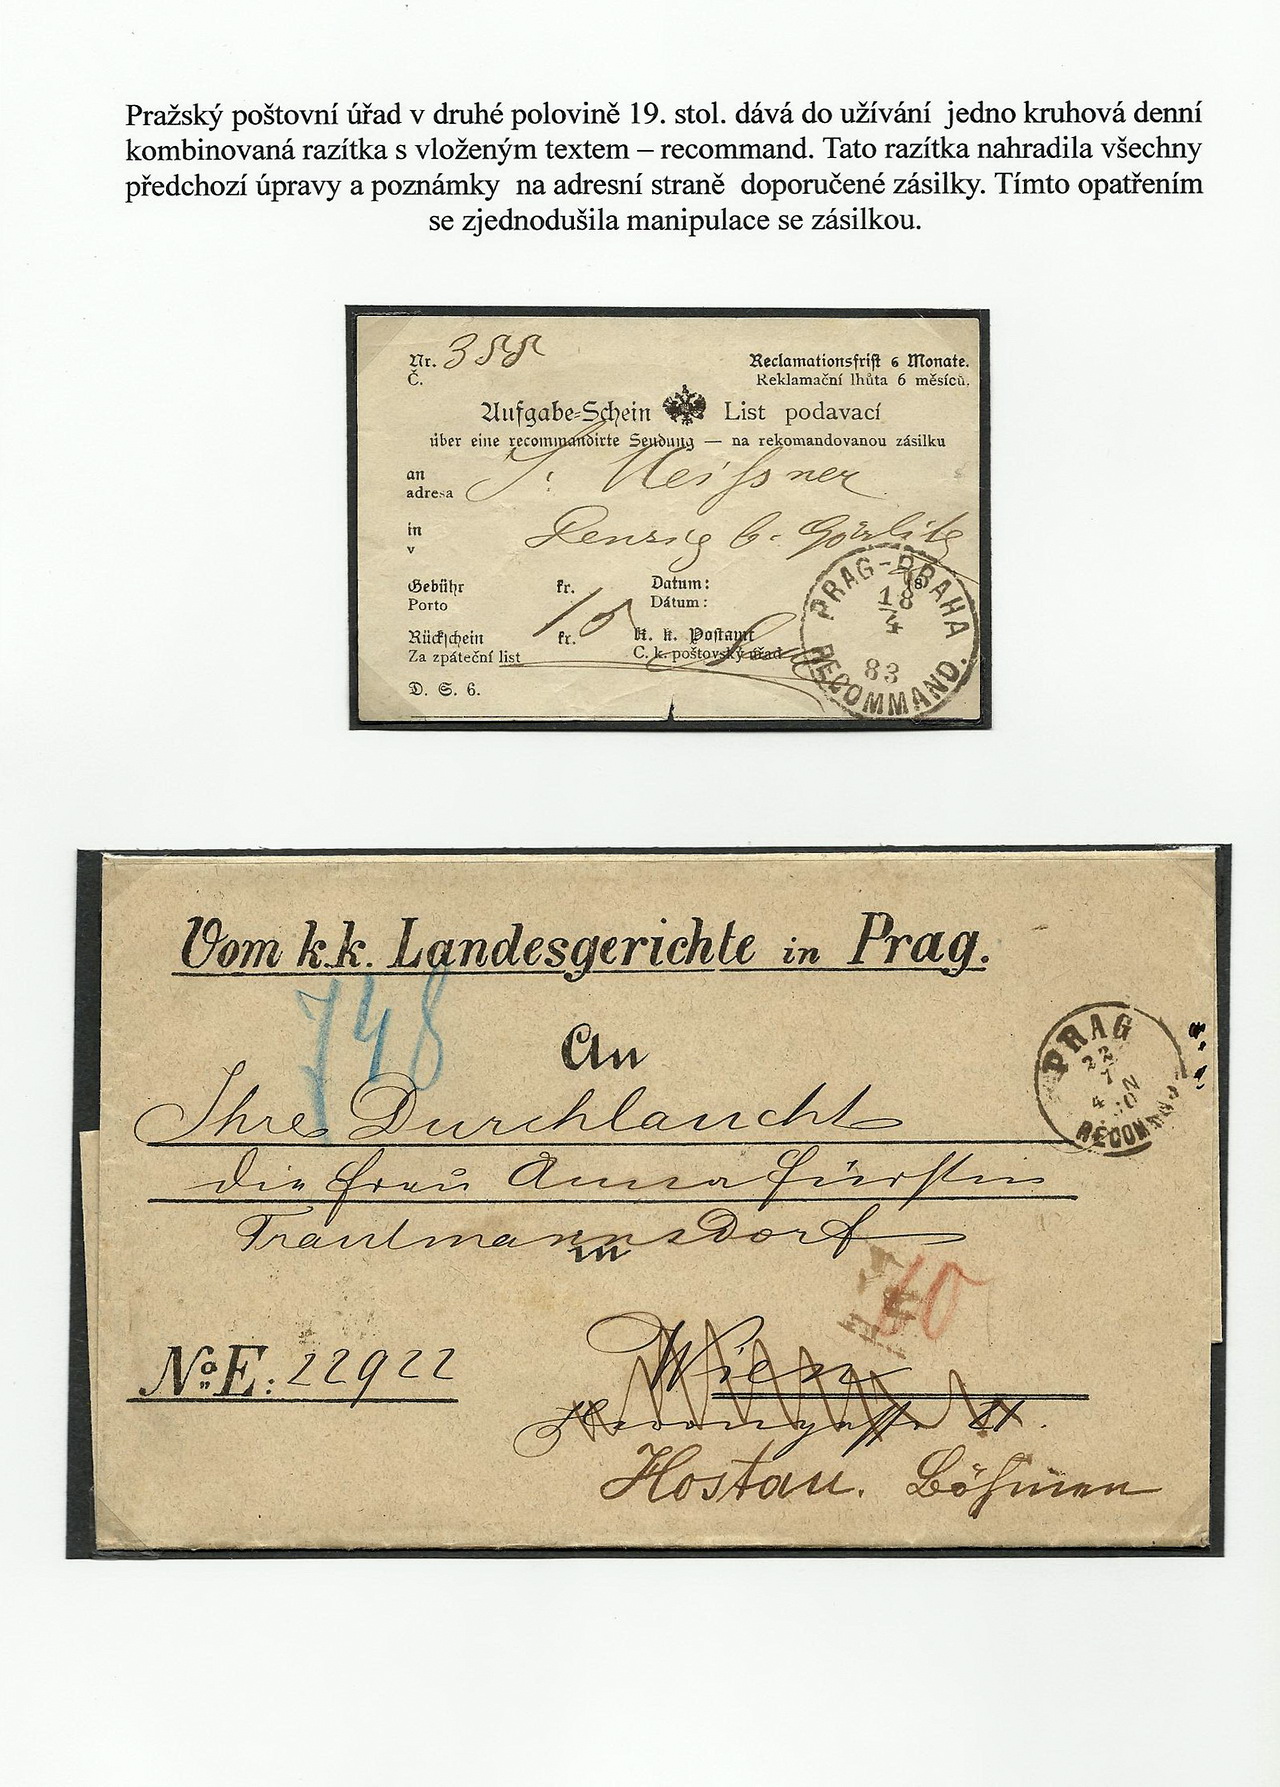 Pražský poštovní úřad v druhé polovině 19. stol. dává do užívání jedno kruhová denní
kombinovaná razítka s vloženým textem – recommand. Tato razítka nahradila všechny
předchozí úpravy a poznámky na adresní straně doporučené zásilky. Tímto opatřením
se zjednodušila manipulace se zásilkou.
Nr. 355
Č.
Reclamationsfrist 6 Monate.
Reklamační lhůta 6 měsíců.
Aufgabe-Schein List podavací
über eine recommandirte Sendung — na rekomandovanou zásilku
an
adresa
Meissner
in
v
b. Görlitz
Gebühr kr. Datum:
Porto Dátum:
Rückschein kr. K. k. Postamt
Za zpáteční list C. k. poštovský úřad
D. S. 6.
PRAG-PRAHA
18
4
83
RECOMMAND.
Vom k.k. Landesgerichte in Prag.
748
An
Ihre Durchlaucht
die Frau Anna Fürstin
Trautmannsdorf
in
PRAG
22
7
RECOMMAND.
60
Wien
No E: 22922
Hostau. Böhmen